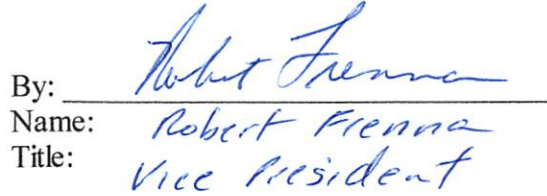 By: Robert Frenna
Name: Robert Frenna
Title: Vice President